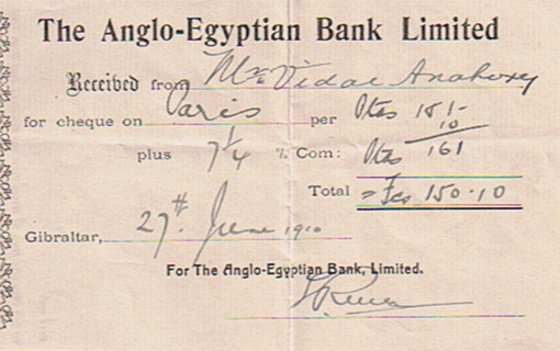 The Anglo-Egyptian Bank Limited
Received from Mr Vidal
for cheque on Paris per Ptas 151-
10
plus 7 1/4 % Com: Ptas 161
Total = Fcs 150.10
Gibraltar, 27th June 1910
For The Anglo-Egyptian Bank, Limited.